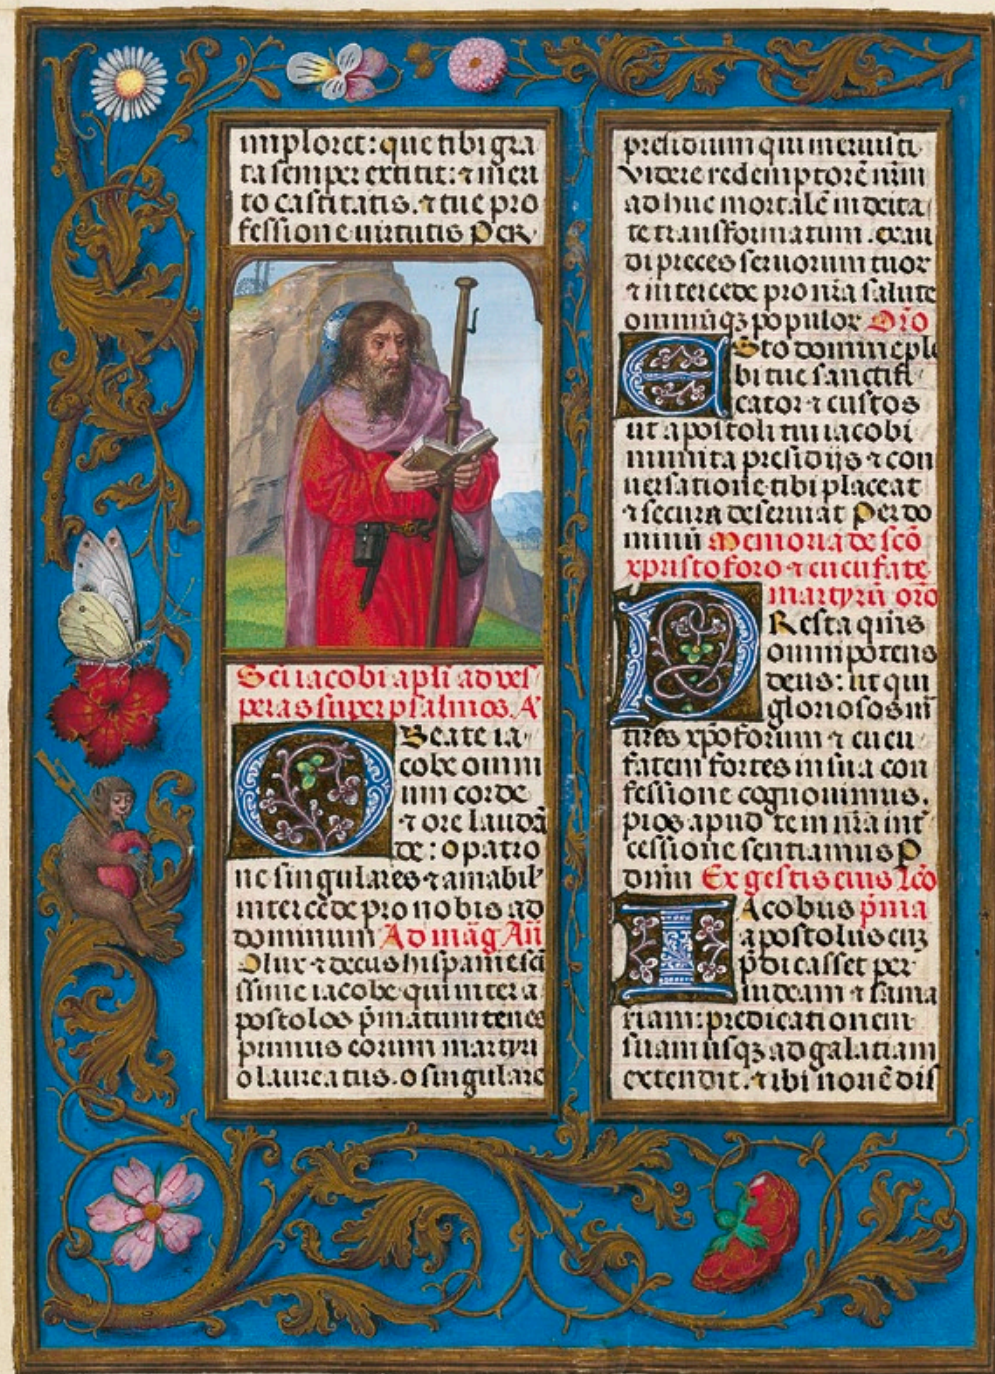 imploret: que tibi gra
ta semper extitit: ⁊ meri
to castitatis. ⁊ tue pro
fessione uirtutis Per
Sci iacobi apli ad ves
peras super psalmos. A
O Beate ia
cobe omni
um corde
⁊ ore laudā
de: o patro
ne singulares ⁊ amabil
intercede pro nobis ad
dominum Ad māg Añ
O lux ⁊ decus hispanie sci
ssime iacobe qui inter a
postolos pͥmatum tenes
primus eorum martyri
o laureatus. o singulare
presidium qui meruisti
videre redemptorē nr̄m
ad huc mortalē in deita
te transformatum. exau
di preces seruorum tuor
⁊ intercede pro nr̄a salute
omniūqꝫ populor Oro
Esto domine ple
bi tue sanctifi
cator ⁊ custos
ut apostoli tui iacobi
munita presidijs ⁊ con
uersatione tibi placeat
⁊ secura deseruiat Per do
minū Memoria de scō
xpristoforo ⁊ cucufate
martyrū orō
PResta quis
omnipotens
deus: ut qui
gloriosos m
tires xp̄oforum ⁊ cucu
fatem fortes in sua con
fessione cognouimus.
pios apud te in nr̄a int
cessione sentiamus P
dnm Ex gestis eius Lcō
IAcobus pͥma
apostolus cu
p̄dicasset per
iudeam ⁊ sama
riam: predicationem
suam usqꝫ ad galatiam
extendit. ⁊ ibi nouē dis